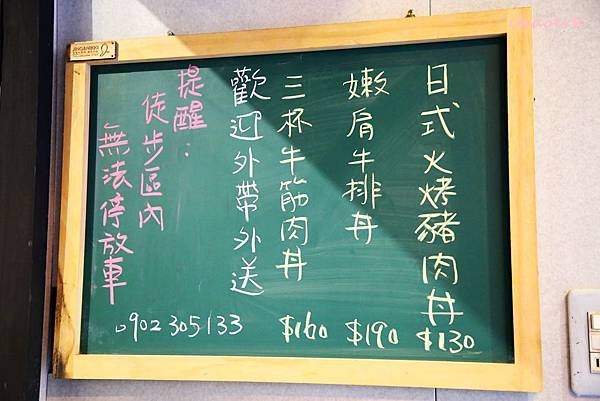 日式火烤豬肉丼 $130
嫩肩牛排丼 $190
三杯牛筋肉丼 $160
歡迎外帶外送
0902305133
提醒：
徒步區內
無法停放車